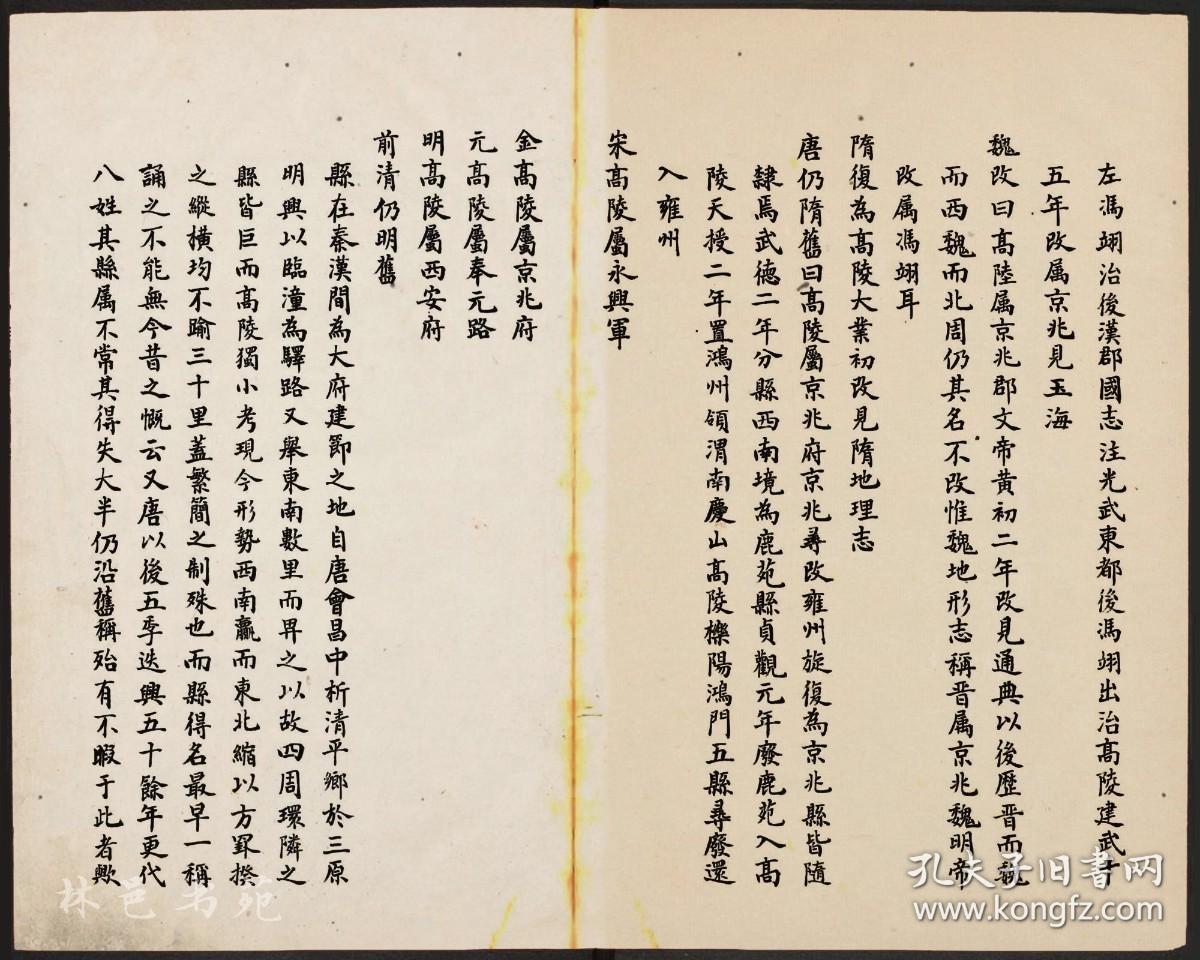 左馮翊治後漢郡國志注光武東都後馮翊出治高陵建武十
五年改属京兆見玉海
魏改曰高陸属京兆郡文帝黄初二年改見通典以後歷晋而魏
而西魏而北周仍其名不改惟魏地形志稱晋属京兆魏明帝
改属馮翊耳
隋復為高陵大業初改見隋地理志
唐仍隋舊曰高陵屬京兆府京兆尋改雍州旋復為京兆縣皆隨
隸焉武德二年分縣西南境為鹿苑縣貞觀元年廢鹿苑入高
陵天授二年置鴻州領渭南慶山高陵櫟陽鴻門五縣尋廢還
入雍州
宋高陵屬永興軍
金高陵屬京兆府
元高陵屬奉元路
明高陵屬西安府
前清仍明舊
縣在秦漢間為大府建節之地自唐會昌中析清平鄉於三原
明興以臨潼為驛路又舉東南數里而畀之以故四周環隣之
縣皆巨而高陵獨小考現今形勢西南贏而東北縮以方罫揆
之縱橫均不踰三十里蓋繁簡之制殊也而縣得名最早一稱
誦之不能無今昔之慨云又唐以後五季迭興五十餘年更代
八姓其縣属不常其得失大半仍沿舊稱殆有不暇于此者歟
二
孔夫子旧书网
www.kongfz.com
林邑书苑